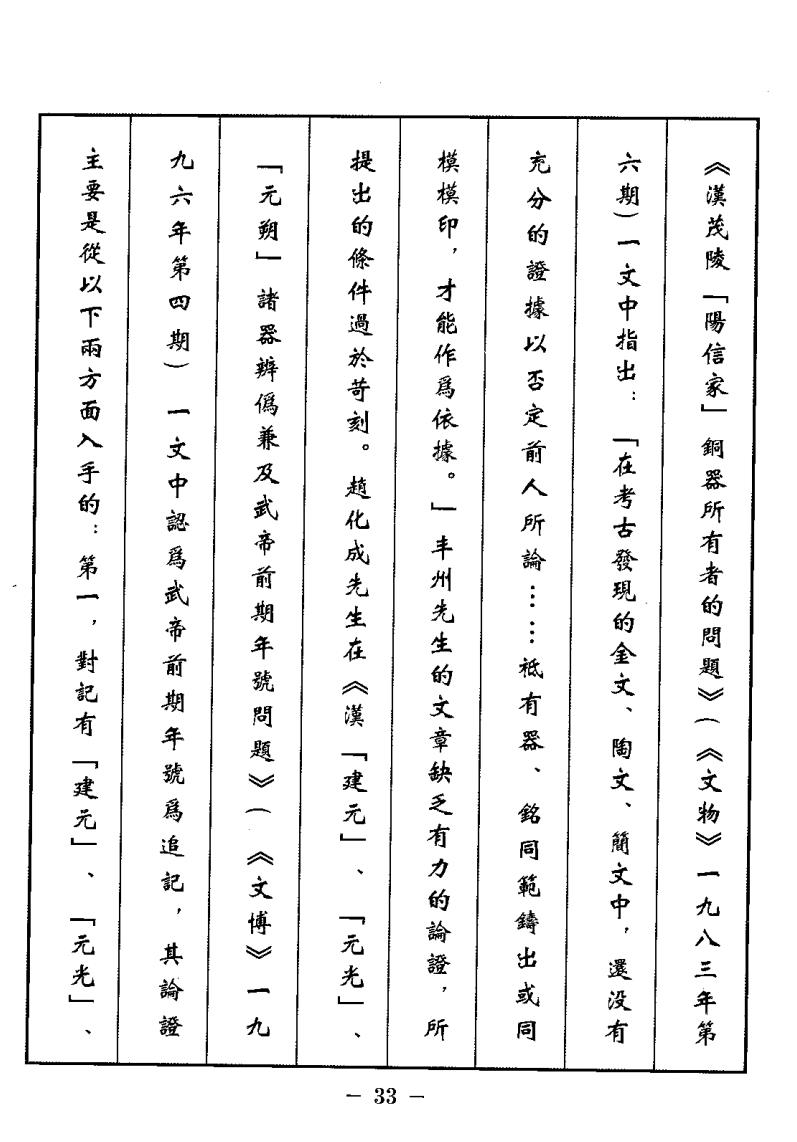 《漢茂陵「陽信家」銅器所有者的問題》(《文物》一九八三年第
六期)一文中指出：「在考古發現的金文、陶文、簡文中，還没有
充分的證據以否定前人所論……祗有器、銘同範鑄出或同
模模印，才能作爲依據。」丰州先生的文章缺乏有力的論證，所
提出的條件過於苛刻。趙化成先生在《漢「建元」、「元光」、
「元朔」諸器辨僞兼及武帝前期年號問題》(《文博》一九
九六年第四期)一文中認爲武帝前期年號爲追記，其論證
主要是從以下兩方面入手的：第一，對記有「建元」、「元光」、
— 33 —